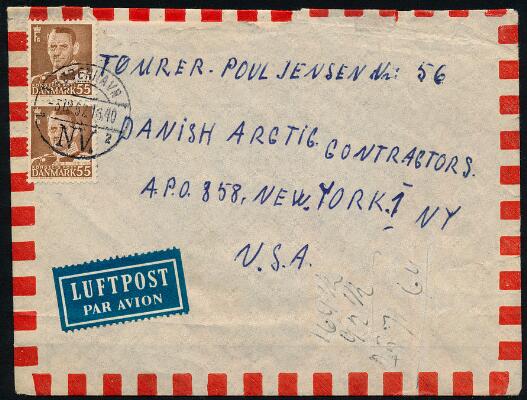 TØMRER - POUL JENSEN Nr: 56
DANISH ARCTIC CONTRACTORS.
A.P.O. 858, NEW YORK. 1 NY
U.S.A.
DANMARK 55
NV. 2
DANMARK 55
LUFTPOST
PAR AVION